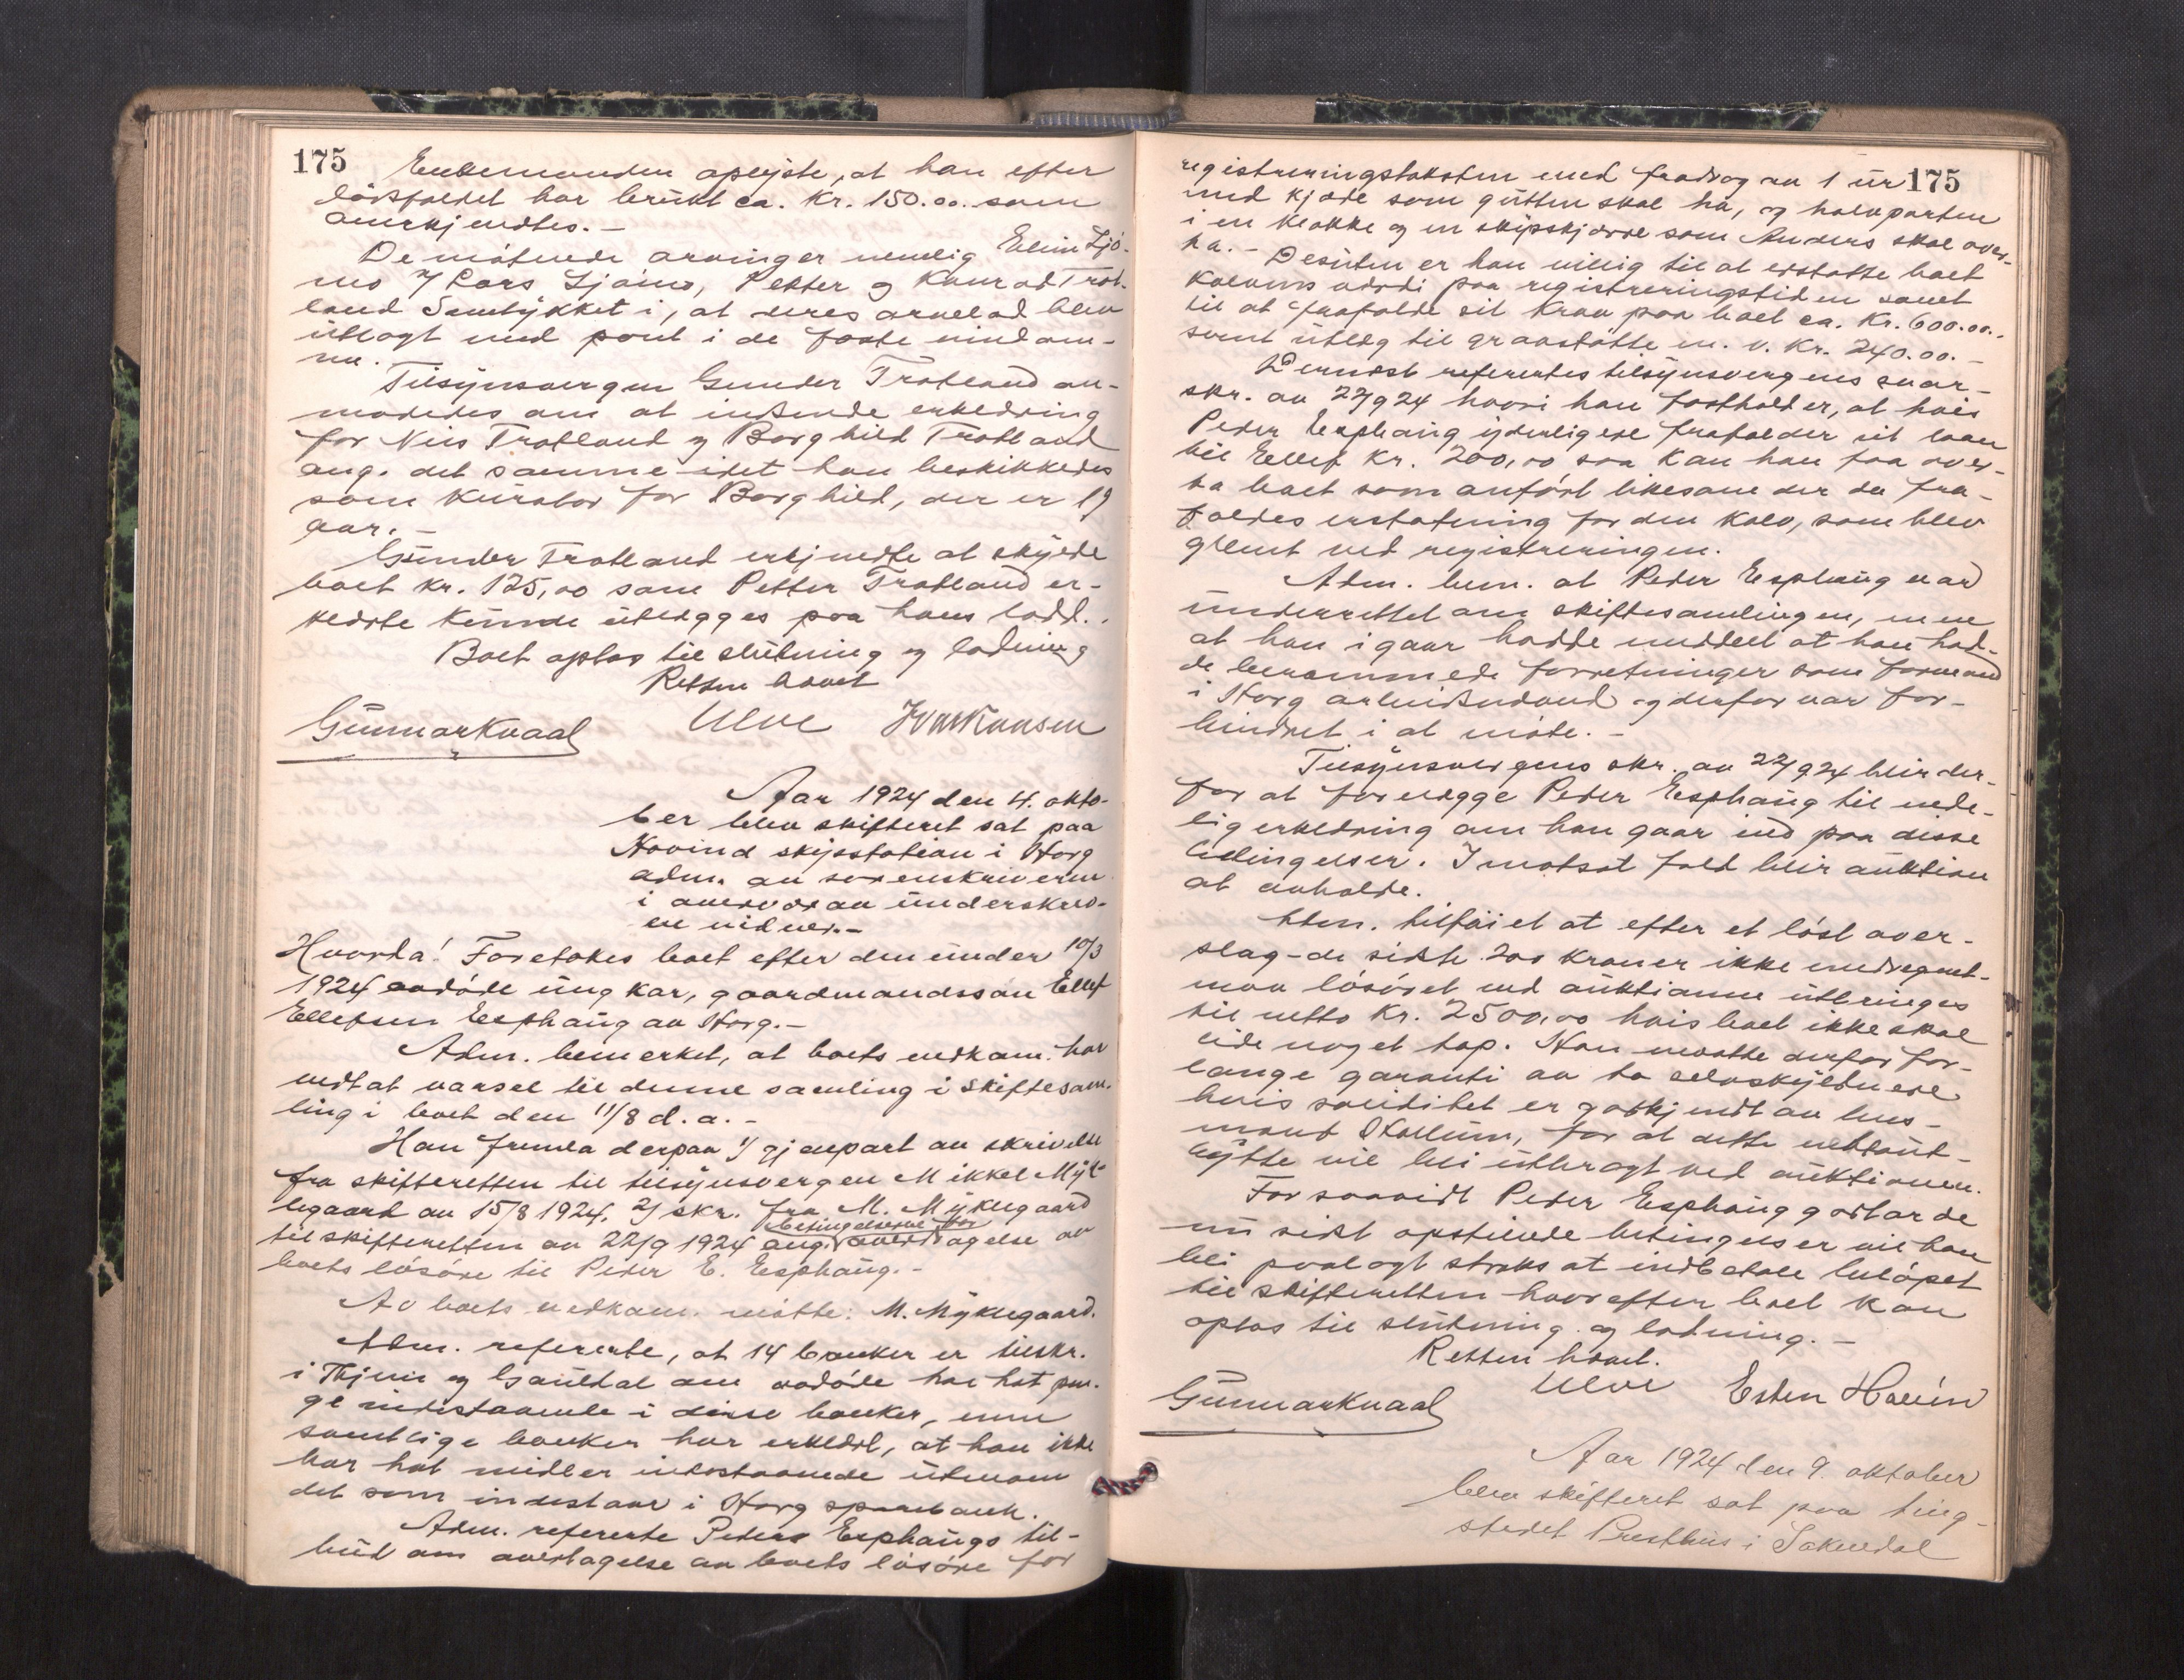 175
Enkemanden oplyste, at han efter
dödsfaldet har brukt ca. Kr. 150.00 som
anerkjendtes. –
De mötende arvinger nemlig Elin Ljö-
mo v/ Lars Ljömo, Petter og Konrad Trot-
land Samtykket i, at deres arvelod blev
utlagt med pant i de faste eiendom-
me.
Tilsynsvergen Gunder Trotland an-
modedes om at indsende erklæring
for Nils Trotland og Borghild Trotland
ang. det samme idet han beskikkedes
som kurator for Borghild, der er 19
aar. –
Gunder Trotland erkjendte at skylde
boet kr. 125,00 som Petter Trotland er-
klærte kunde utlegges paa hans lodd.
Boet optas til slutning og lodning
Retten hævet
Gunnar Kvaal Ulve
Aar 1924 den 4. okto-
ber blev skifteret sat paa
Hovind skysstation i Horg
adm. av sorenskriveren
i overvær av underskrev-
ne vidner. –
Hvorda: Foretokes boet efter den under 10/3
1924 avdöde ungkar, gaardmandssön Ellef
Ellefsen Esphaug av Horg. –
Adm. bemerket, at boets vedkom. har
vedtat varsel til denne samling i skiftesam-
ling i boet den 11/8 d. a. –
Han fremla derpaa 1/ gjenpart av skrivelse
fra skifteretten til tilsynsvergen Mikkel Myk-
legaard av 15/8 1924. 2/ skr. fra M. Myklegaard
betingelserne for
til skifteretten av 22/9 1924 ang. overdragelse av
boets lösöre til Peder E. Esphaug. –
Av boets vedkom. mötte: M. Myklegaard.
Adm. refererte, at 14 banker er tilskr.
i Thjem og Gauldal om avdöde har hat pen-
ge indestaaende i disse banker, men
samtlige banker har erklært, at han ikke
har hat midler indestaaende utenom
det som indestaar i Horg sparebank.
Adm. refererte Peders Esphaugs til-
bud om overtagelse av boets lösöre for
175
registreringstaksten med fradrag av 1 ur
med kjæde som gutten skal ha, og halvparten
i en klokke og en skipskjære som Anders skal over-
ta. – Desuten er han villig til at erstatte boet
kalvens værdi paa registreringstiden samt
til at frafalde sit krav paa boet ca. Kr. 600.00.
samt utlæg til gravstötte m. v. Kr. 240.00. –
Dernæst refereertes tilsynsvergens svar-
skr. av 22/9 24 hvori han fastholder, at hvis
Peder Esphaug yderligere frafalder sit laan
til Ellef kr. 200,00 saa kan han faa over-
ta boet som anfört likesom der da fra-
faldes erstatning for den kalv, som blev
glemt ved registreringen.
Adm. bem. at Peder Esphaug var
underrettet om skiftesamlingen, men
at han igaar hadde meddelt at han had-
de berammede forretninger som formand
i Horg arbeidsnævnd og derfor var for-
hindret i at möte. –
Tilsynsvergens skr. av 22/9 24 blir der-
for at forelægge Peder Esphaug til ende-
lig erklæring om han gaar ind paa disse
betingelser. I motsat fald blir auktion
at avholde.
Adm. tilföiet at efter et löst over-
slag – de sidste 200 kroner ikke medregnet –
maa lösöret ved auktionen utbringes
til netto Kr. 2500,00 hvis boet ikke skal
lide noget tap. Han maatte derfor for-
lange garanti av to selvskyldnere
hvis soliditet er godkjendt av lens-
mand Skollum, for at dette nettout-
bytte vil bli utbragt ved auktionen.
For saavidt Peder Esphaug godtar de
nu sidst opstillede betingelser vil han
bli paalagt straks at indbetale belöpet
til skifteretten hvorefter boet kan
optas til slutning og lodning. –
Retten hævet.
Gunnar Kvaal Ulve Esten Hovin
Aar 1924 den 9. oktober
blev skifteret sat paa ting-
stedet Presthus i Soknedal